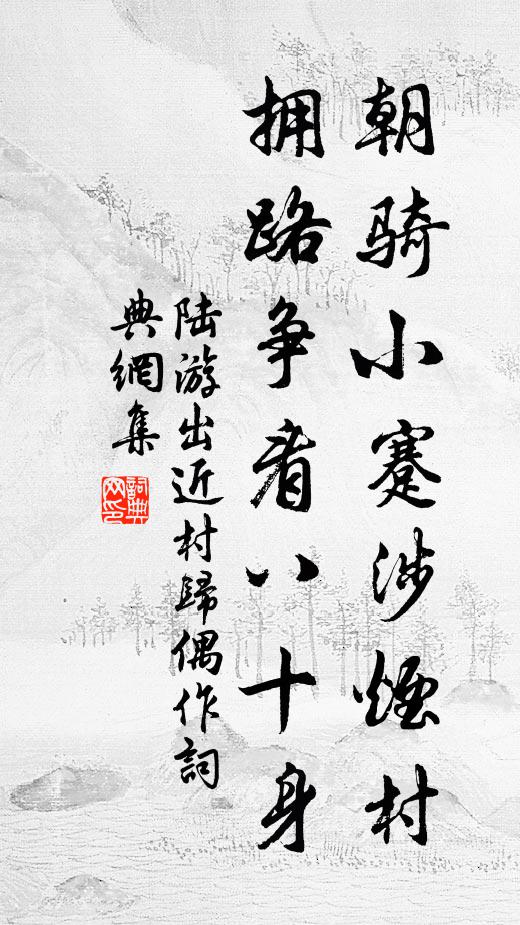 朝骑小蹇涉烟村
拥路争看八十身
陆游出近村歸偶作詞
典網集
詞典
网印